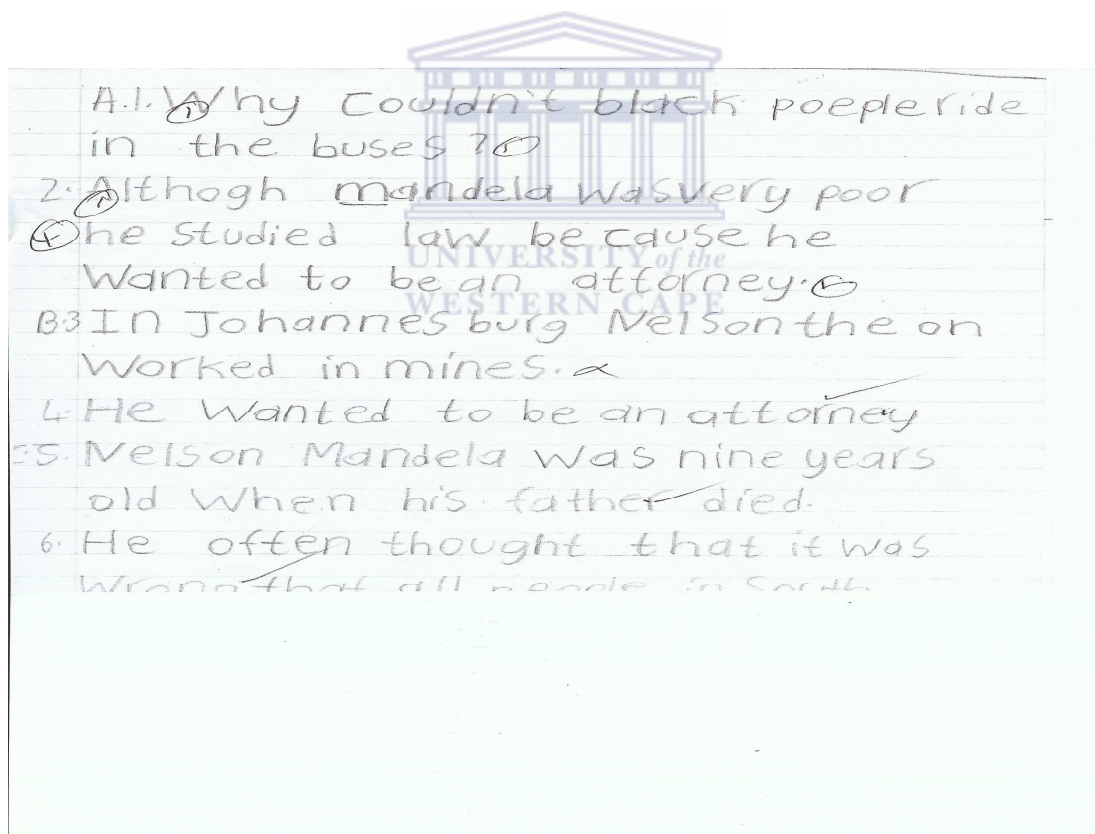 A.1. Why couldn't black poeple ride
in the buses?
2. Althogh mandela was very poor
he studied law because he
wanted to be an attorney.
B.3 In Johannesburg Nelson the on
worked in mines.
4. He wanted to be an attorney
5. Nelson Mandela was nine years
old when his father died.
6. He often thought that it was
wrong that all people in South
UNIVERSITY of the
WESTERN CAPE